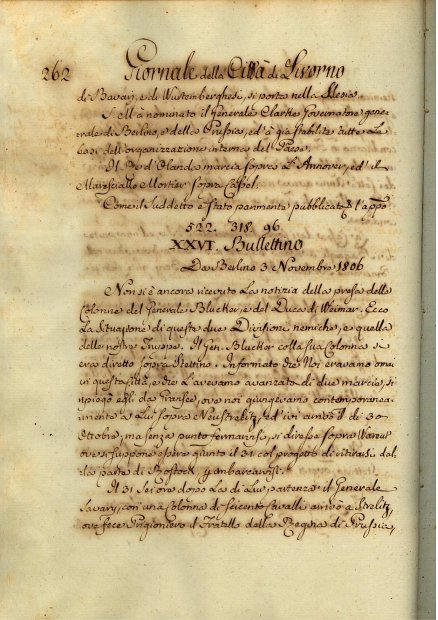 262 Giornale della Città di Livorno
di Bavari, e di Wurtemberghesi, si porta nella Slesia.
S. M. à nominato il Generale Clarke Governatore gene=
rale di Berlino, e della Prussia, ed è già stabilite tutte le
basi dell'organizzazione interna del Paese.
Il Re d'Olanda marcia sopra l'Annover, ed il
Maresciallo Mortier sopra Cassel.
Come il Suddetto è stato parimente pubblicato
522. 318. 96
XXVI. Bullettino
Da Berlino 3 Novembre 1806
Non si è ancora ricevuto la notizia della presa delle
Colonne del Generale Blucker, e del Duca di Weimar. Ecco
la Situazione di queste due Divisioni nemiche, e quella
delle nostre Truppe. Il Gen. Blucker colla sua Colonna si
era diretto sopra Stettino. Informato che Noi eravamo
in questa Città, e che l'avevamo avanzato di due marcie, si
piegò egli da Gransee, ove noi giungevamo contemporanea=
mente a Lui sopra Neustrelitz, ed ivi arrivò il di 30
Ottobre, ma senza punto fermarsi, si diresse sopra
ove si suppone essere giunto il 31 col progetto di ritirarsi dal=
la parte di Rostock, per imbarcarvisi.
Il 31 Sei ore dopo la di Lui partenza il Generale
Savary, con una Colonna di Seicento Cavalli arrivò a Strelitz,
ove fece Prigioniero il Fratello della Regina di Prussia,